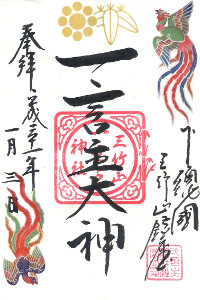 下総國
三竹山鎮座
一言主大神
三竹山
神社
奉拝
三十一年
一月三日